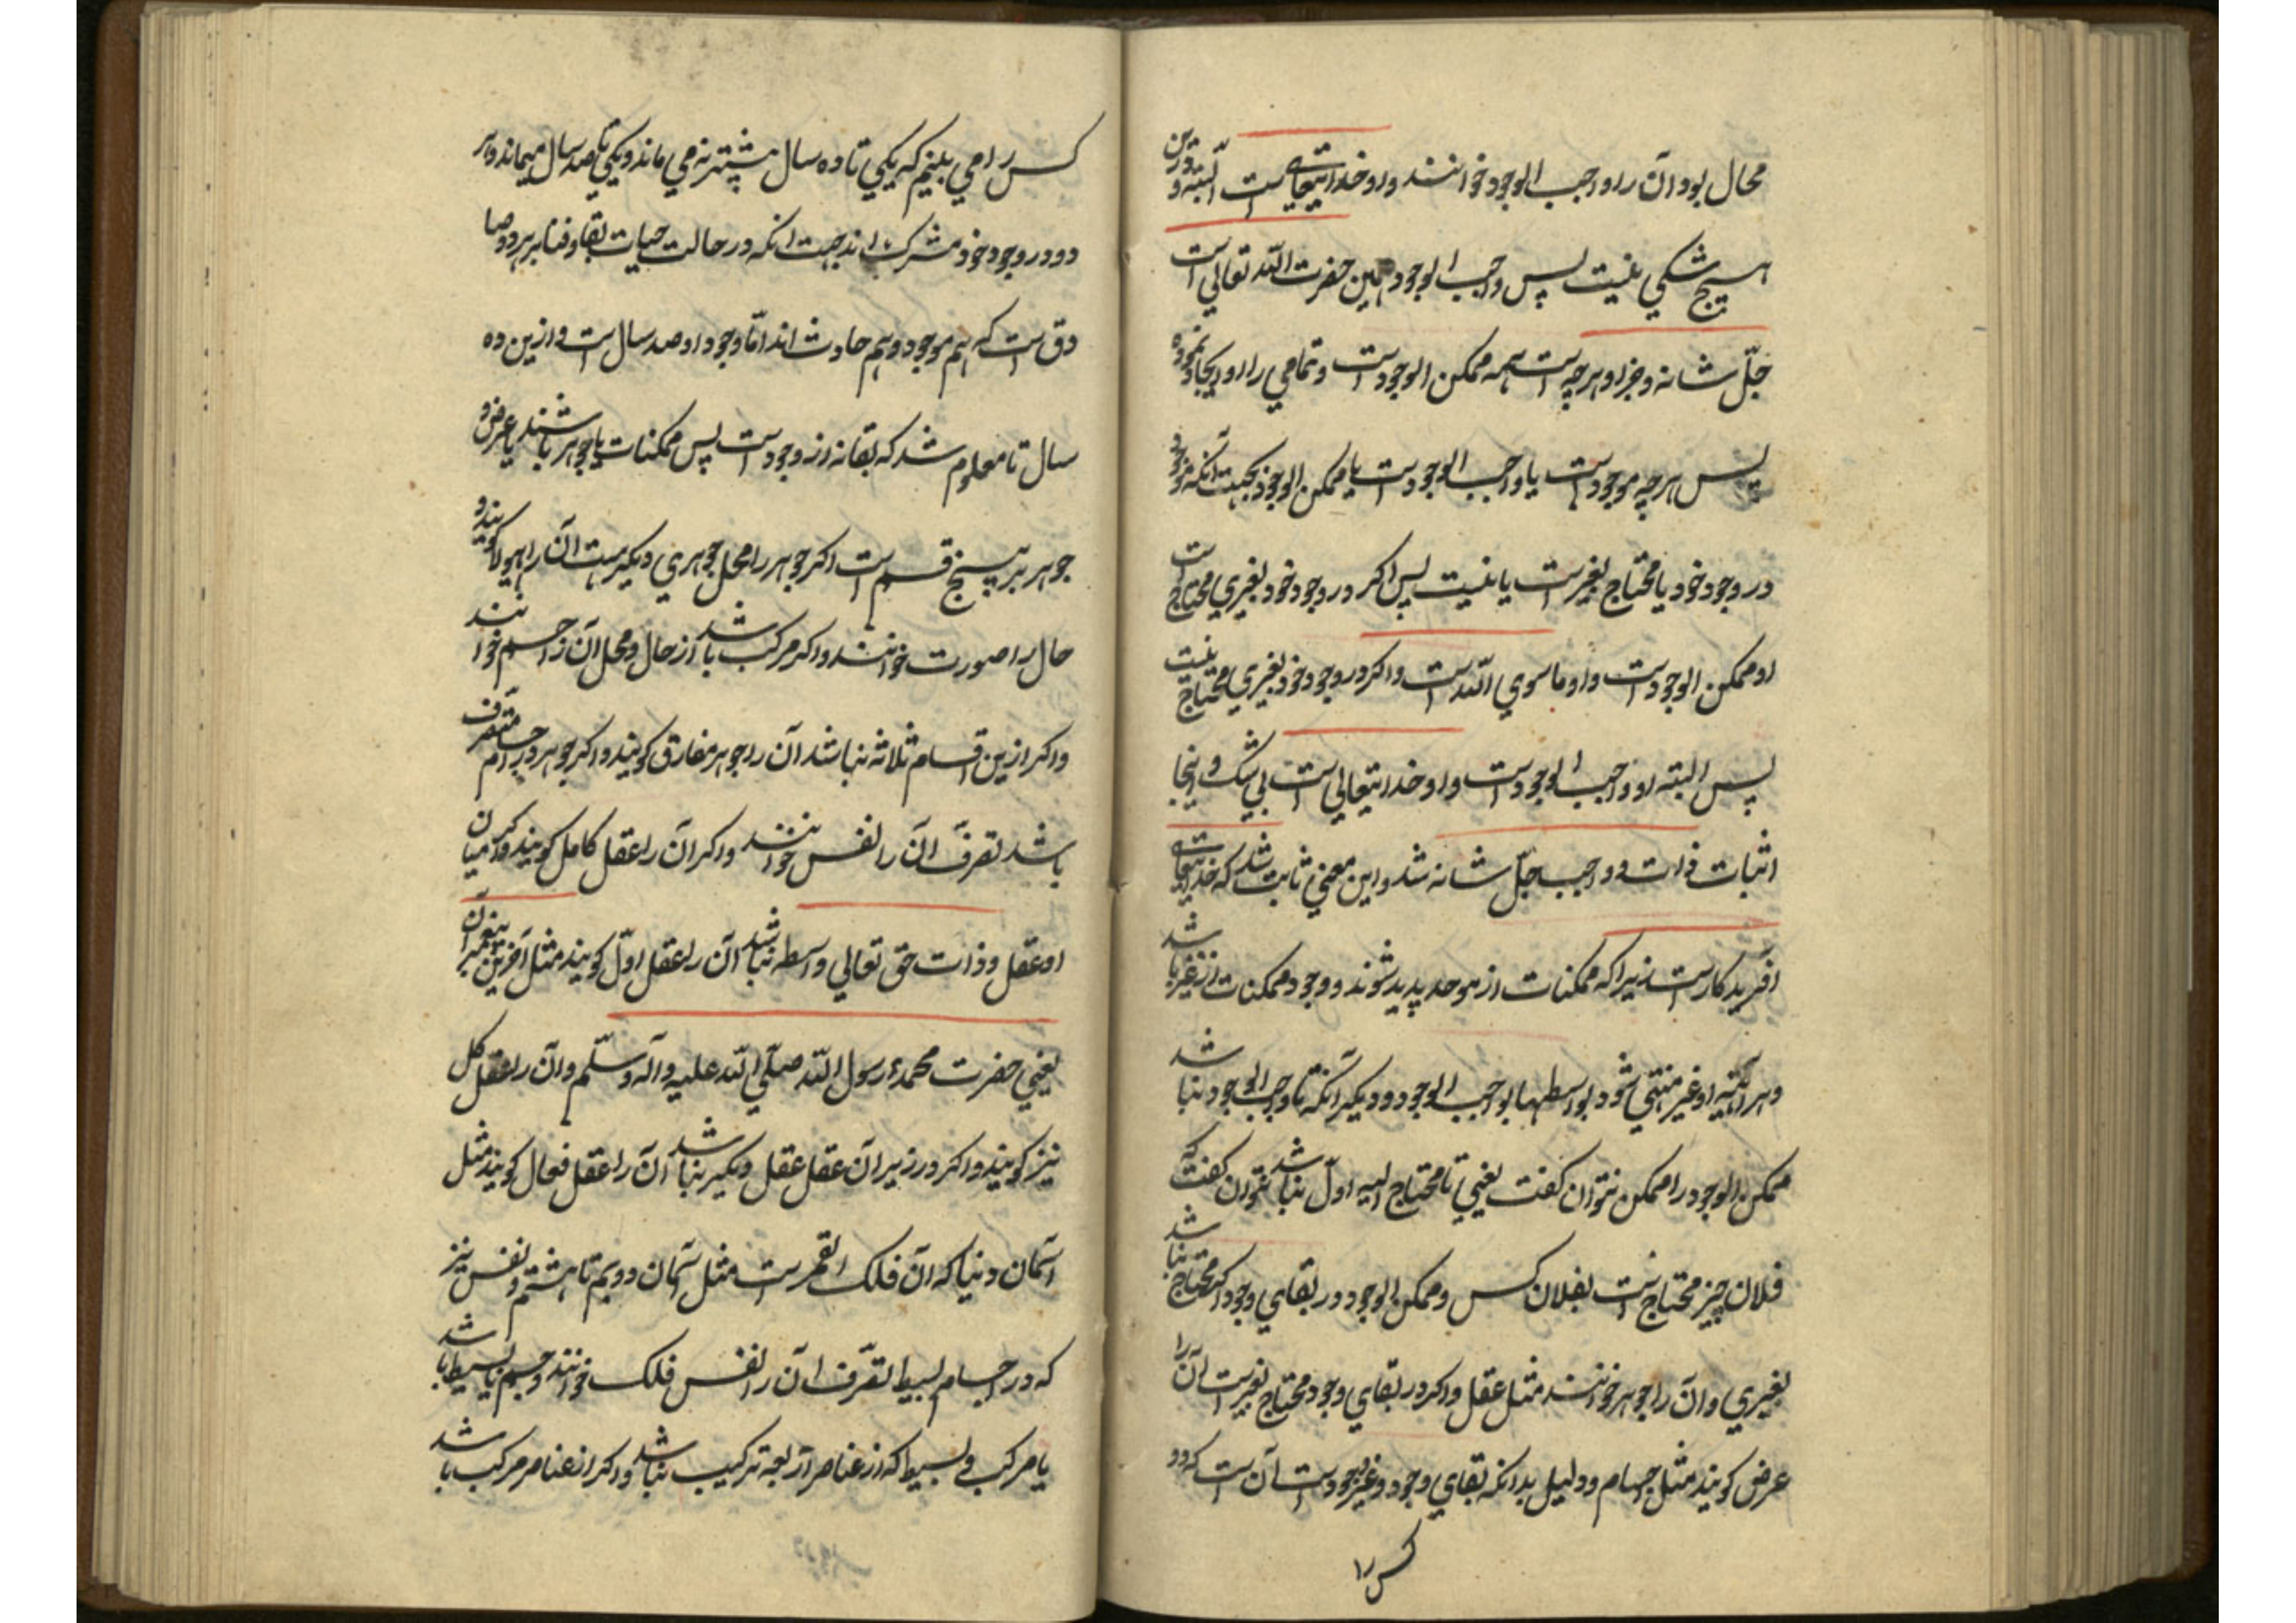 محال بود آن را واجب الوجود خوانند و او خدایتعالی است البته و درین
هیچ شکی نیست پس واجب الوجود همین حضرت الله تعالی است
جلّ شانه و جز او هرچه است همه ممکن الوجود است و تمامی را او ایجاد نموده
پس هرچه موجود است یا واجب الوجود است یا ممکن الوجود بجهت آنکه موجود
در وجود خود یا محتاج بغیر است یا نیست پس اکر در وجود خود بغیری محتاج است
او ممکن الوجود است و او ماسوی الله است و اکر در وجود خود بغیری محتاج نیست
پس البته او واجب الوجود است و او خدایتعالی است بی شک و اینجا
اثبات ذات واجب جلّ شانه شد و این معنی ثابت شد که خدایتعالی
آفریدکار است زیرا که ممکنات از موجد پدید شوند و وجود ممکنات از غیر باشد
و هر آئینه او غیر منتهی شود بواسطها بواجب الوجود و دیکر آنکه تا واجب الوجود نباشد
ممکن الوجود را ممکن نتوان کفت یعنی تا محتاج الیه اول نباشد نتوان کفت که
فلان چیز محتاج است بفلان کس و ممکن الوجود در بقای وجود اکر محتاج نباشد
بغیری و آن را جوهر خوانند مثل عقل و اکر در بقای وجود محتاج بغیر است آن را
عرض کویند مثل اجسام و دلیل بدانکه بقای وجود و غیر وجود است آن است که دو
کس را
کس را می بینیم که یکی تا ده سال بیشتر نمی ماند و یکی تا صد سال میماند و هر
دو در وجود خود مشرک اند بجهت آنکه در حالت حیات بقا و فنا بر هر دو صا
دق است که هم موجود و هم حادث اند امّا وجود او صد سال است و ازین ده
سال تا معلوم شد که بقا نه از وجود است پس ممکنات یا جوهر باشند یا عرض و
جوهر بر پنج قسم است اکر جوهر را محل جوهری دیکر است آن را هیولا کویند و
حال را صورت خوانند و اکر مرکب باشد از حال و محل آن را جسم خوانند
و اکر ازین اقسام ثلاثه نباشد آن را جوهر مفارق کویند و اکر جوهر در اجسام متصرف
باشد تصرّف آن را نفس خوانند و اکر آن را عقل کامل کویند و اکر میان
او عقل و ذات حق تعالی واسطه نباشد آن را عقل اوّل کویند مثل آفرین پیغمبران
یعنی حضرت محمد رسول الله صلّی الله علیه و آله وسلّم و آن را عقل کل
نیز کویند و اکر در زیر آن عقل عقل دیکیر نباشد آن را عقل فعال کویند مثل
آسمان دنیا که آن فلک القمر است مثل آسمان دویم تا هشتم و نفس نیز
که در اجسام بسیط تصرّف آن را نفس فلک خوانند و جسم یا بسیط باشد
یا مرکب و بسیط که از عناصر اربعه ترکیب نباشد و اکر از عناصر مرکب باشد